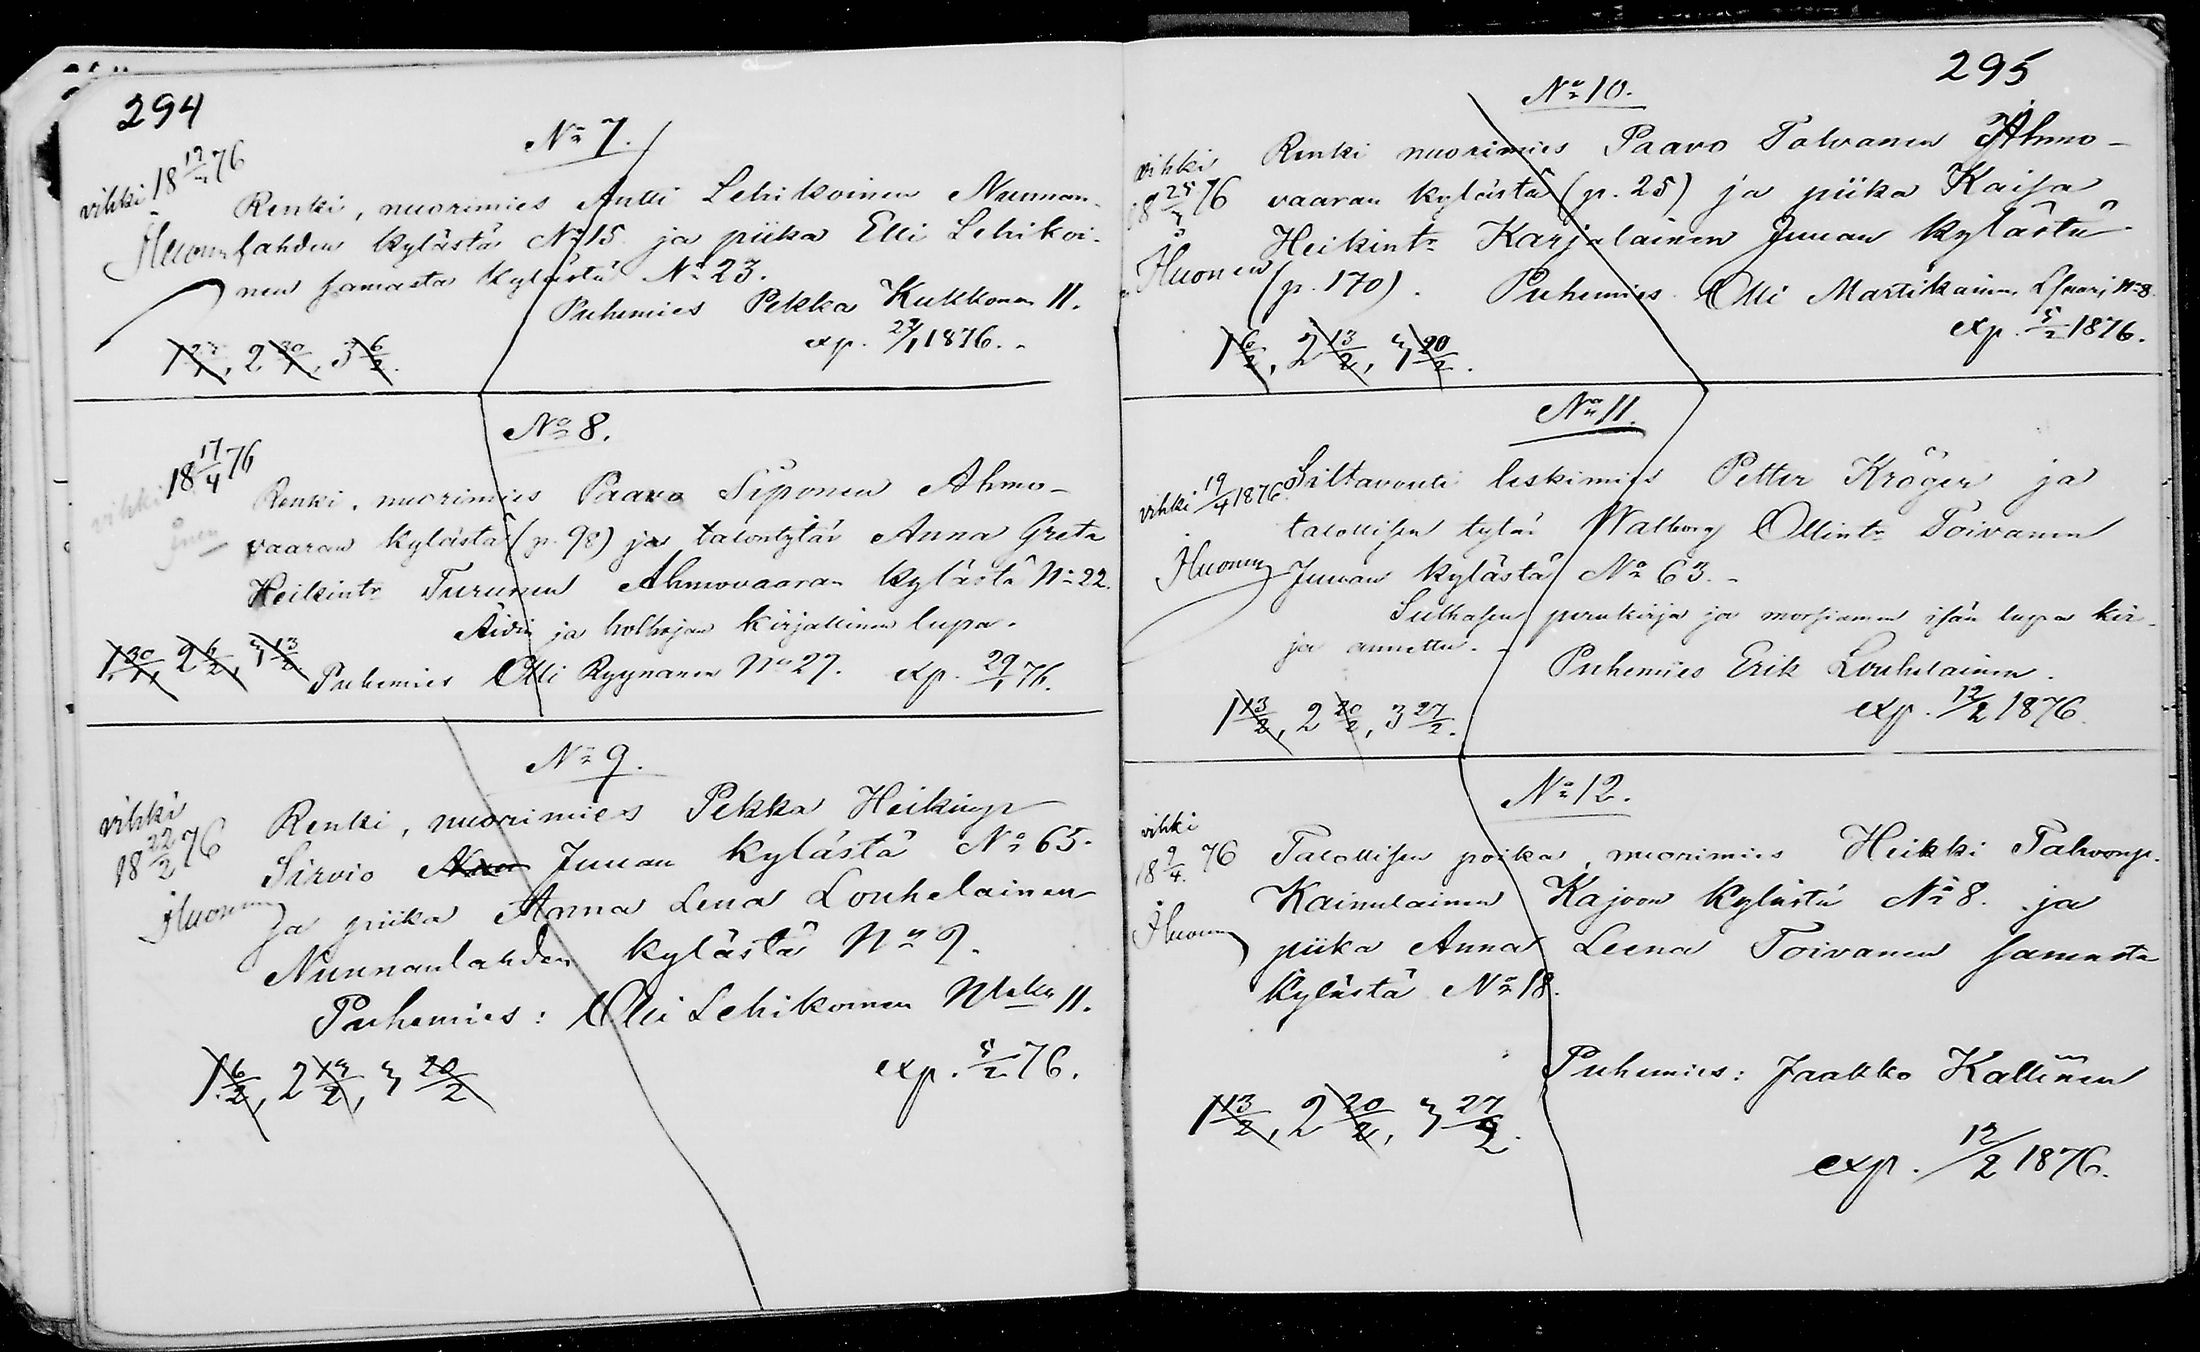 294
No 7.
vihki 18 17/4 76
Renki, nuorimies Antti Lehikoinen Nunnan-
Ihuonen
lahden kylästä No 15 ja piika Elli Lehikoi-
nen samasta kylästä No 23.
Puhemies Pekka Kukkonen 11.
exp. 23/1 1876.
1 23/1, 2 30/1, 3 6/2.
No 8.
vihki 18 17/4 76
Renki, nuorimies Paavo Siponen Ahmo-
vaaran kylästä (p. 98) ja talontytär Anna Greta
Heikintr Turunen Ahmovaaran kylästä No 22.
Äidin ja holhojan kirjallinen lupa.
1 30/1, 2 6/2, 3 13/2
Puhemies Olli Ryynänen No 27. exp. 29/1 76.
No 9.
vihki
18 22/2 76
Renki, nuorimies Pekka Heikinp
Sirvio Juuan kylästä No 65.
Ihuonen
ja piika Anna Lena Louhelainen
Nunnanlahden kylästä No 9.
Puhemies: Olli Lehikoinen Nlaks 11.
exp. 5/2 76.
1 6/2, 2 13/2, 3 20/2
295
No 10.
vihki
Renki nuorimies Paavo Tolvanen Ahmo-
18 25/3 76
vaaran kylästä (p. 25) ja piika Kaisa
Heikintr Karjalainen Juuan kylästä
Ihuonen
(p. 170). Puhemies Olli Martikainen No 8.
exp. 5/2 1876.
1 6/2, 2 13/2, 3 20/2.
No 11.
vihki 19/4 1876
Siltavouti leskimies Petter Kröger ja
talollisen tytär Walborg Ollintr Toivanen
Ihuonen
Juuan kylästä No 63.
Sulhasen perukirja ja morsiamen isän lupa kir-
ja annettu.
Puhemies Erik Louhelainen.
exp. 12/2 1876.
1 13/2, 2 20/2, 3 27/2.
No 12.
vihki
18 9/4 76
Talollisen poika, nuorimies Heikki Pahvonp.
Kainulainen Kajoon kylästä No 8. ja
Ihuonen
piika Anna Leena Toivanen samasta
kylästä No 18.
Puhemies: Jaakko Kallinen
1 13/2, 2 20/2, 3 27/2.
exp. 12/2 1876.